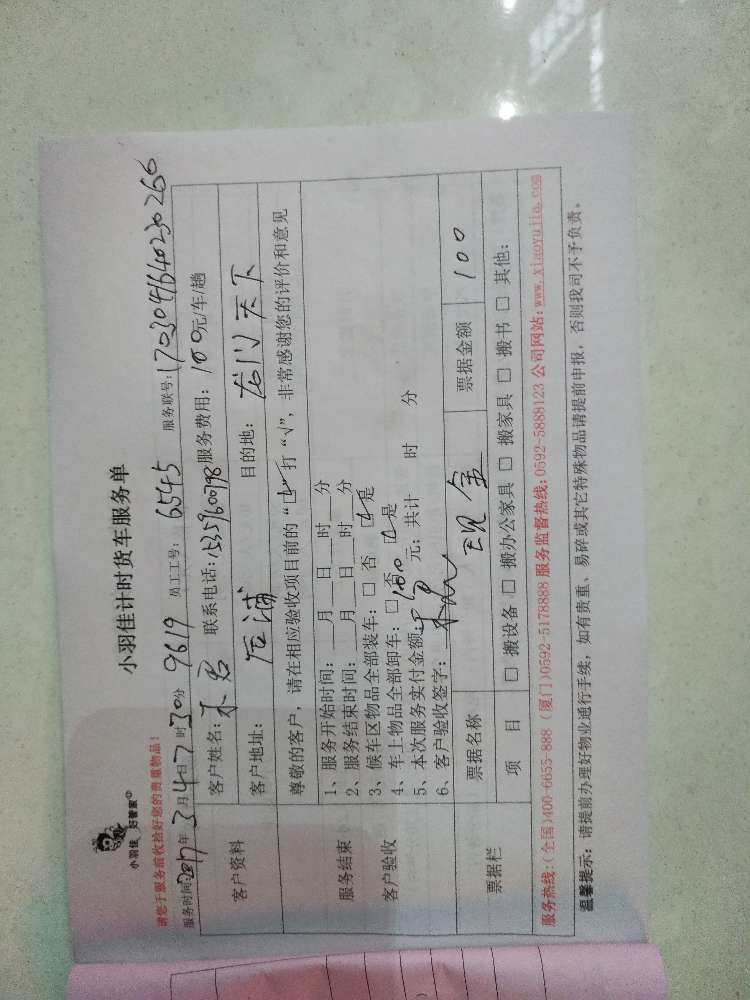 小羽佳 好管家
小羽佳计时货车服务单
请您于服务前收拾好您的贵重物品!
服务时间:2017年3月4日7时30分 9619 员工工号: 6545 服务联号: 1703041640230266
客户资料
客户姓名: 联系电话: 15359600798 服务费用: 100元/车/趟
客户地址: 后浦 目的地: 龙门天下
尊敬的客户,请在相应验收项目前的“☑”打“√”,非常感谢您的评价和意见
服务结束
客户验收
1、服务开始时间:__月__日__时__分
2、服务结束时间:__月__日__时__分
3、候车区物品全部装车: □ 否 ☑是
4、车上物品全部卸车: □否 ☑是
5、本次服务实付金额: 100 元; 共计 时 分
6、客户验收签字:
票据栏
票据名称 现金 票据金额 100
项 目 □ 搬设备 □ 搬办公家具 □ 搬家具 □ 搬书 □ 其他:
服务热线:(全国)400-6655-888 (厦门)0592-5178888 服务监督热线:0592-5889123 公司网站:www.xiaoyujia.com
温馨提示: 请提前办理好物业通行手续, 如有贵重、易碎或其它特殊物品请提前申报, 否则我司不予负责。